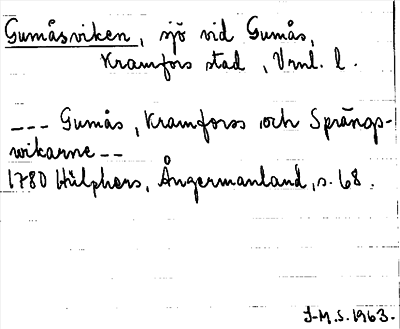 Gumåsviken, sjö vid Gumås,
Kramfors stad, Vrnl. l.
--- Gumås, Kramforss och Sprängs-
wikarne --
1780 Hülphers, Ångermanland, s. 68.
J-M. S. 1963.